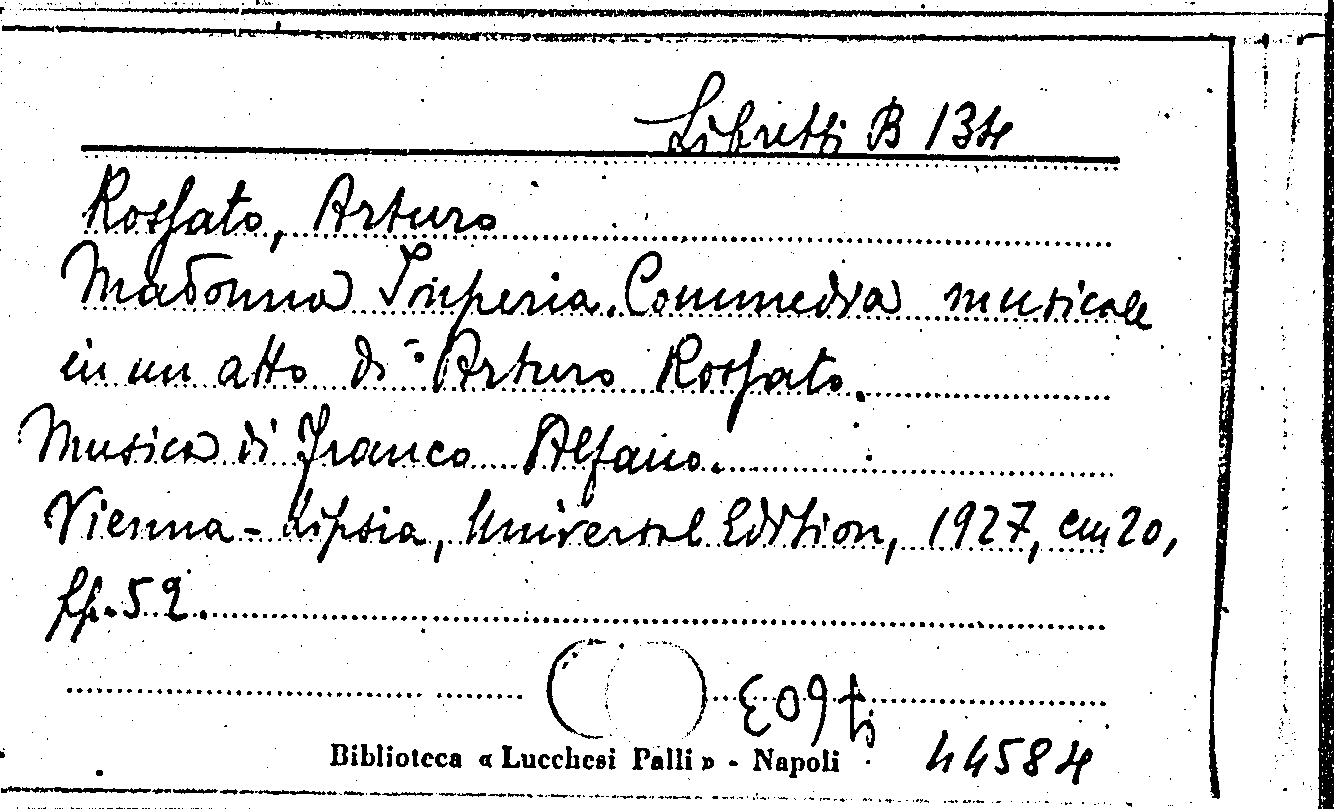 Libretti B 134
Rossato, Arturo
Madonna Imperia. Commedia musicale
in un atto di Arturo Rossato.
Musica di Franco Alfano.
Vienna - Lipsia, Universal Edition, 1927, cm 20,
pp. 52.
Biblioteca « Lucchesi Palli » - Napoli
44584